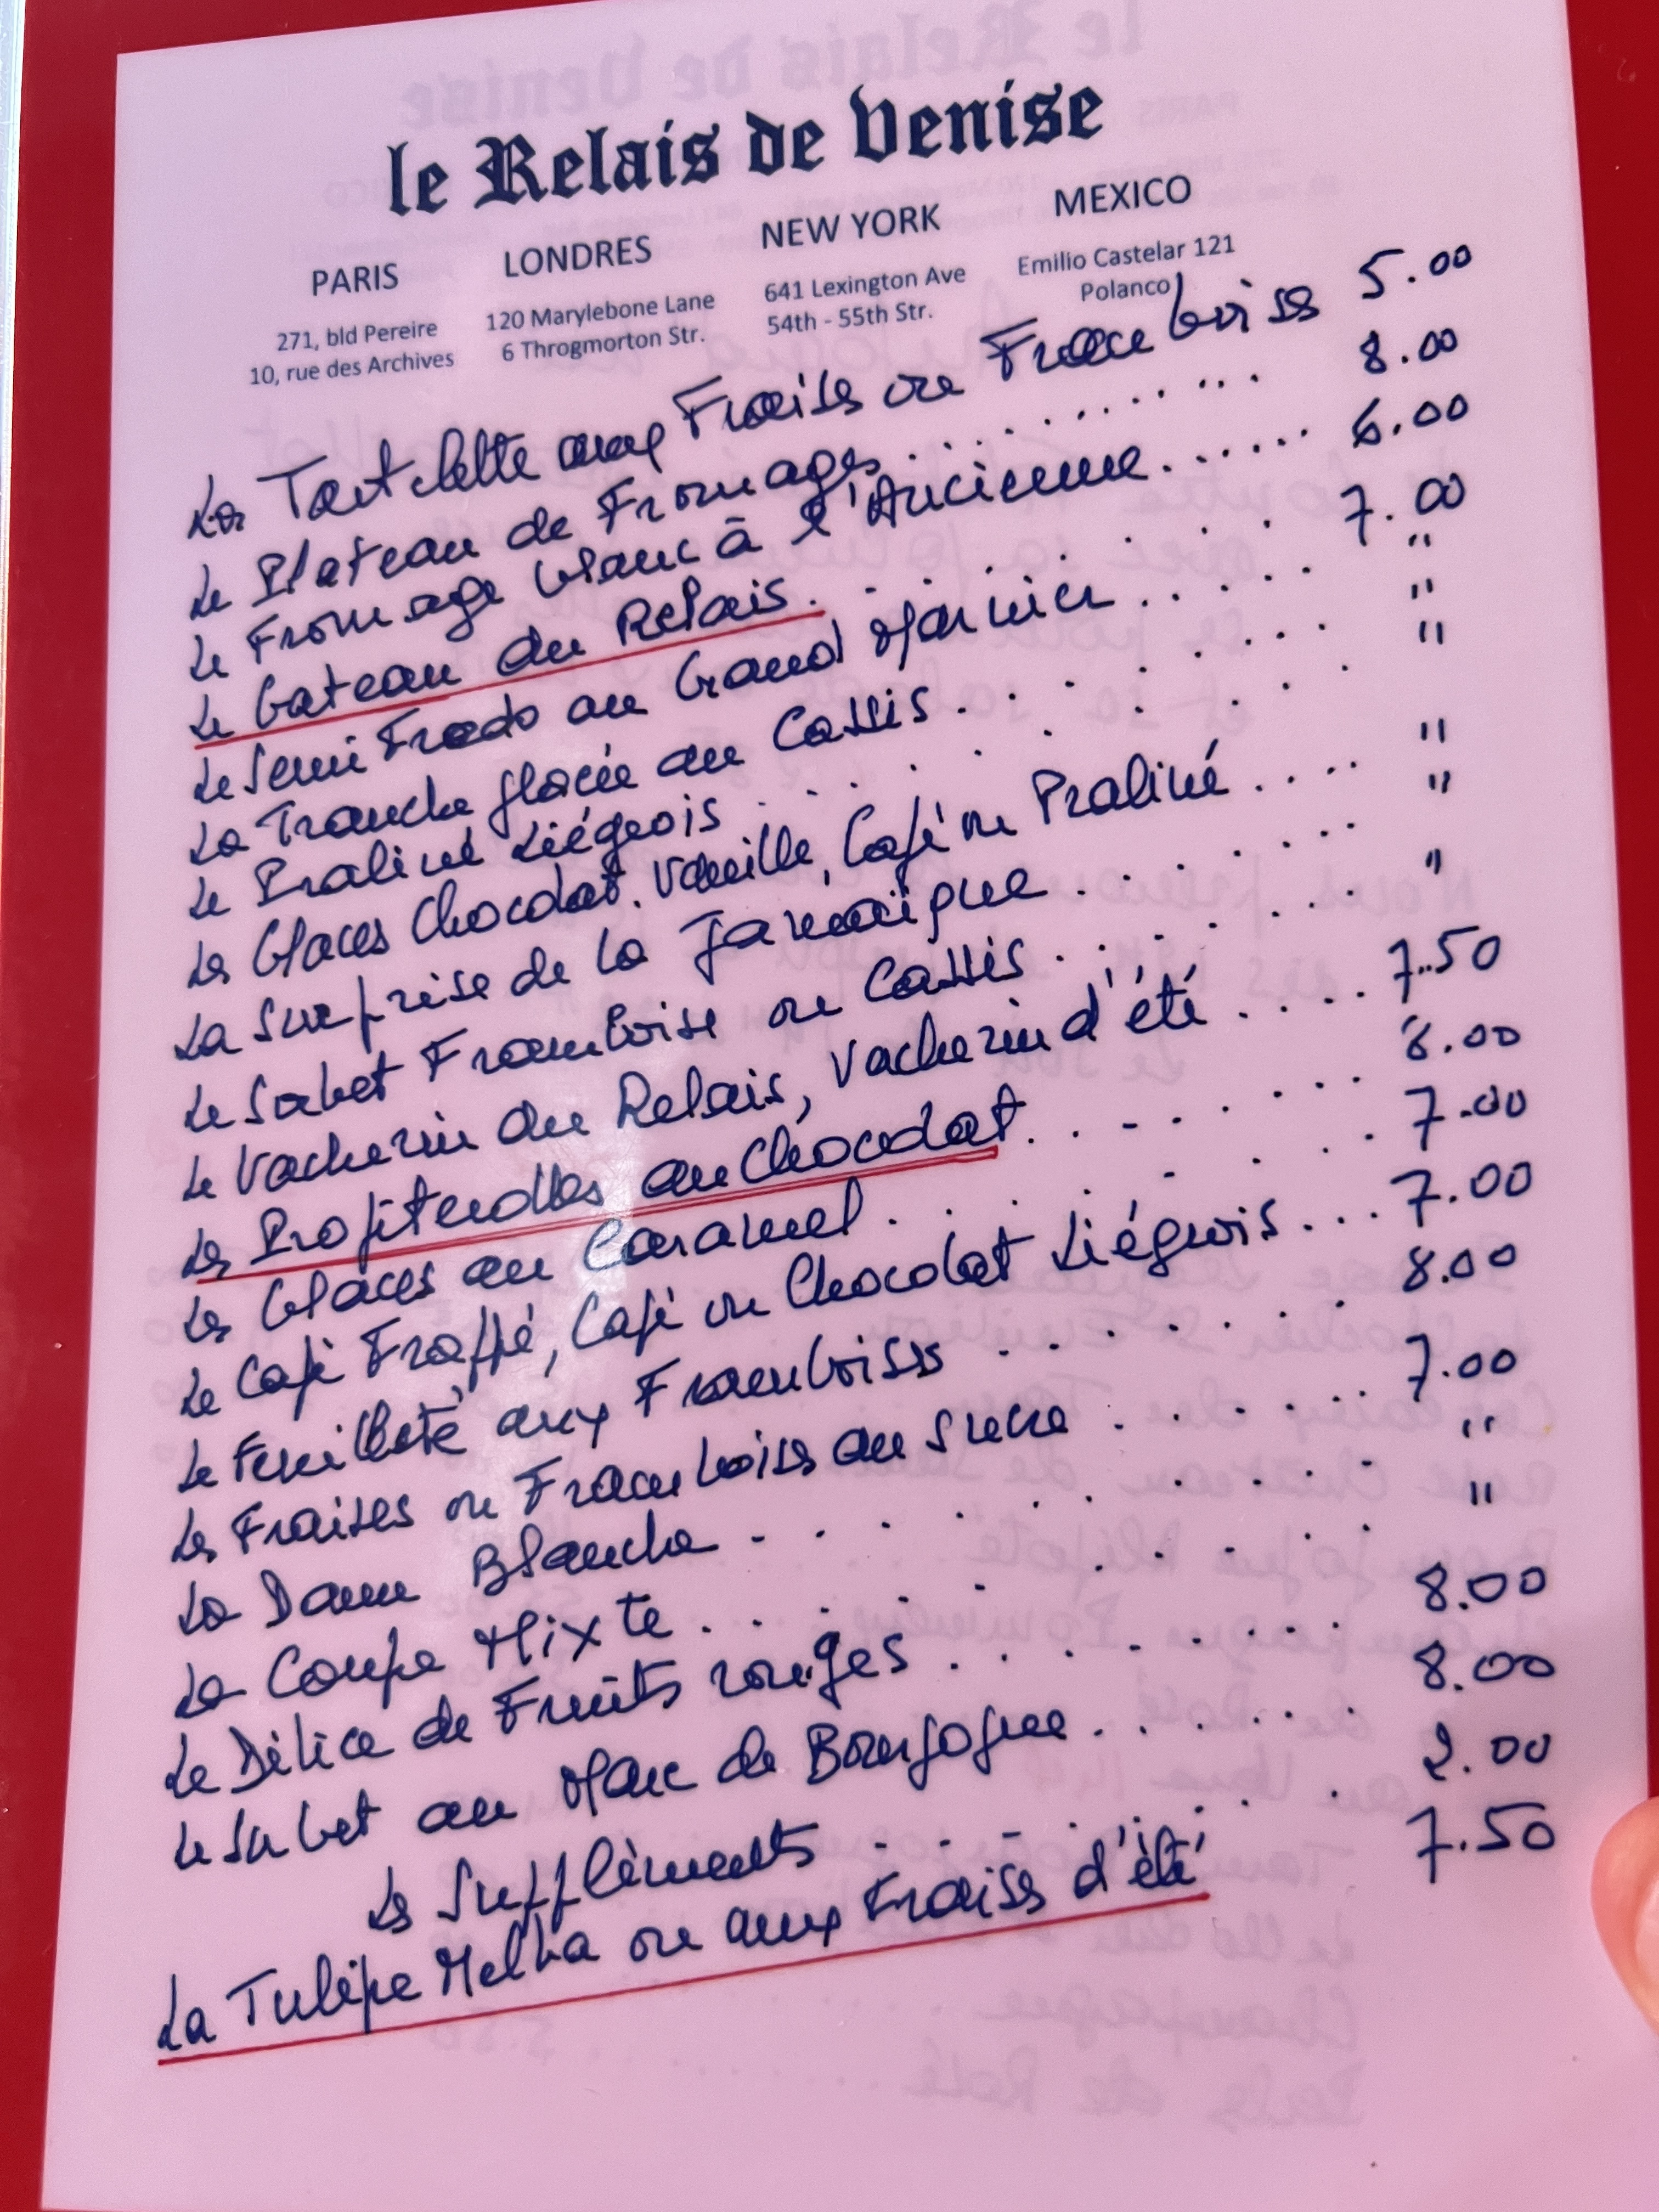 le Relais de Venise
PARIS LONDRES NEW YORK MEXICO
271, bld Pereire 120 Marylebone Lane 641 Lexington Ave Emilio Castelar 121
10, rue des Archives 6 Throgmorton Str. 54th - 55th Str. Polanco
La Tartelette aux Fraises ou Framboises 5.00
Le Plateau de Fromages .......... 8.00
Le Fromage blanc à l'Ancienne ...... 6.00
Le Gateau du Relais ....... 7.00
Le Semi Fredo au Grand Marnier ..... "
La Tranche glacée au Cassis ....... "
Le Praliné Liégeois ........ "
Les Glaces Chocolat, Vanille, Café ou Praliné .... "
La Surprise de la Jamaïque ....... "
Le Sorbet Framboise ou Cassis ....... "
Le Vacherin du Relais, Vacherin d'été .... 7.50
Les Profiterolles au Chocolat ....... 8.00
Les Glaces au Caramel ....... 7.00
Le Café Frappé, Café ou Chocolat Liégeois ... 7.00
Le Feuilleté aux Framboises ....... 8.00
Les Fraises ou Framboises au Sucre ...... 7.00
La Dame Blanche ......... "
La Coupe Mixte ......... "
Le Délice de Fruits rouges ........ 8.00
Le Sorbet au Marc de Bourgogne ...... 8.00
Les Suppléments ....... 2.00
La Tulipe Melba ou aux Fraises d'été 7.50